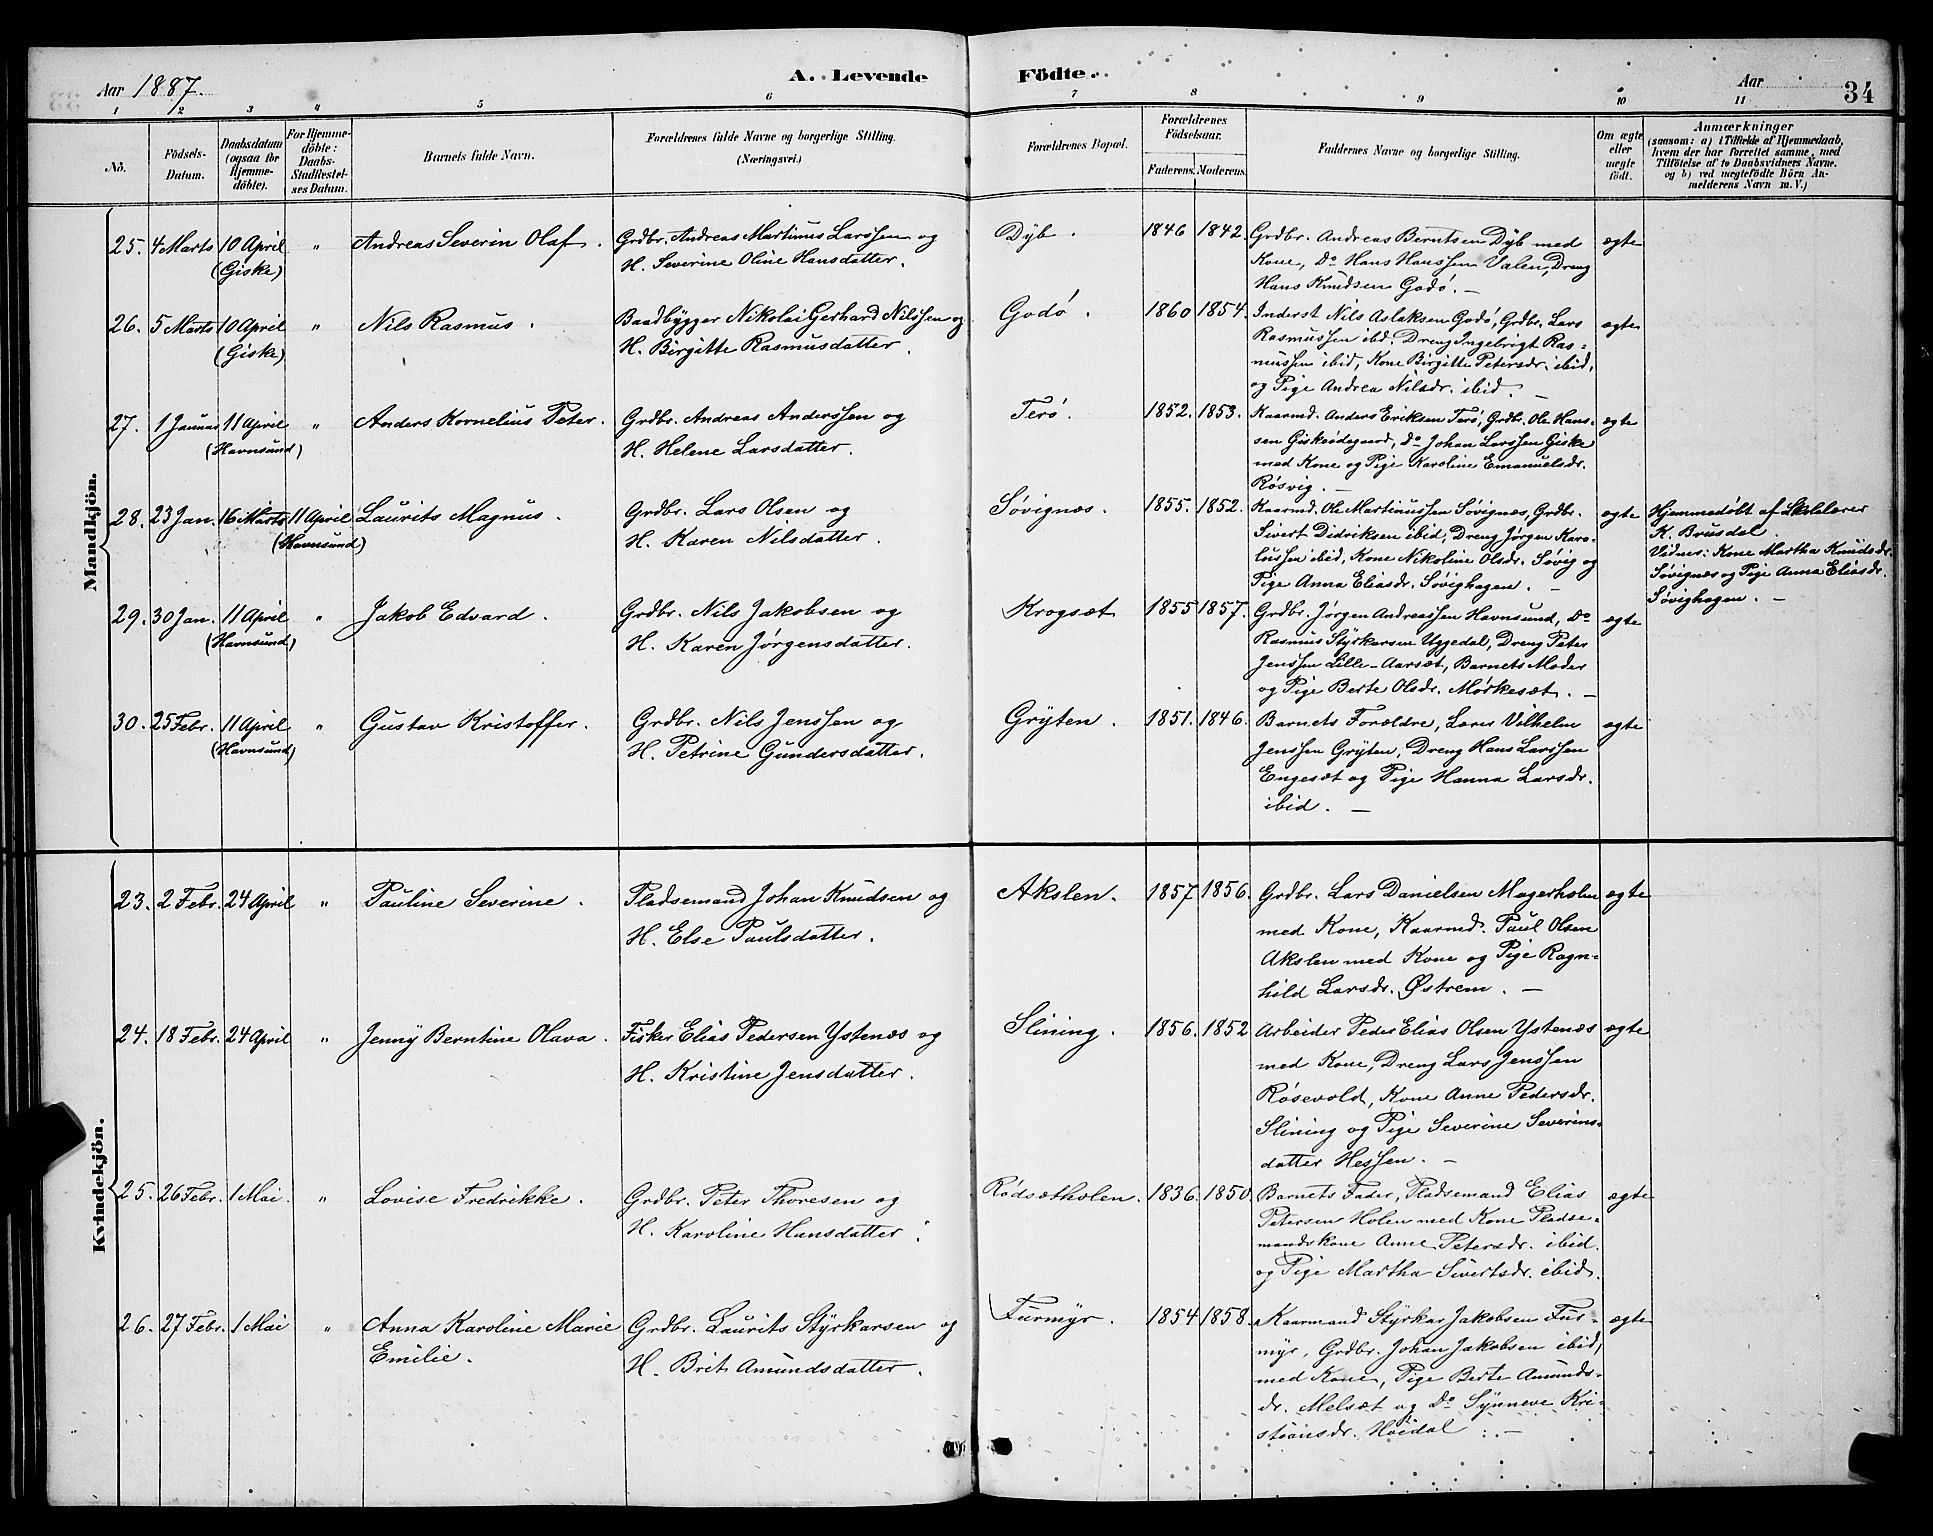 Aar 1887. A. Levende Födte. Aar 34
1 2 3 4 5 6 7 8 9 10 11
No. Födsels-Datum. Daabsdatum (ogsaa for Hjemme-döbte). For Hjemme-döbte: Daabs-Stadfæstel-ses Datum. Barnets fulde Navn. Forældrenes fulde Navne og borgerlige Stilling. (Næringsvei.) Forældrenes Bopæl. Forældrenes Födselsaar. Faderens. Moderens. Faddernes Navne og borgerlige Stilling. Om ægte eller uægte födt. Anmærkninger
(saasom: a) i Tilfælde af Hjemmedaab,
hvem der har forrettet samme, med
Tilföielse af to Daabsvidners Navne.
og b) ved uægtefödte Börn An-
melderens Navn m. V.)
Mandkjön.
25. 4 Marts 10 April " Andreas Severin Olaf. Grdbr. Andreas Martinus Larssen og Dyb. 1846 1842. Grdbr. Andreas Berntsen Dyb med ægte
(Giske) H. Severine Oline Hansdatter. Kone, Do Hans Hanssen Valen, Dreng
Hans Knudsen Godø. —
26. 5 Marts 10 April " Nils Rasmus. Baadbygger Nikolai Gerhard Nilssen og Godø. 1860 1854. Inderst Nils Aslaksen Godø, Grdbr. Lars ægte
(Giske) H. Birgitte Rasmusdatter. Rasmussen ibd, Dreng Ingebrigt Ras-
mussen ibid, Kone Birgitte Petersdr. ibid,
og Pige Andrea Nilsdr. ibid. —
27. 1 Januar 11 April " Anders Kornelius Peter. Grdbr. Andreas Anderssen og Terø. 1852. 1853. Kaarmd. Anders Eriksen Terø, Grdbr. Ole Hans- ægte
(Havnsund) H. Helene Larsdatter. sen Giskeødegaard, Do Johan Larssen Giske
med Kone og Pige Karoline Emanuelsdr.
Røsvig. —
28. 23 Jan. 16 Marts 11 April Laurits Magnus. Grdbr. Lars Olsen og Søvignæs. 1855. 1852. Kaarmd. Ole Martinussen Søvignæs, Grdbr. ægte Hjemmedøbt af Skolelærer
(Havnsund) H. Karen Nilsdatter. Sivert Didriksen ibid, Dreng Jørgen Karo- K. Brusdal.
lussen ibid, Kone Nikoline Olsdr. Søvig og Vidner: Kone Martha Knudsdr.
Pige Anna Eliasdr. Søvighagen. — Søvignæs og Pige Anna Eliasdr.
Søvighagen. —
29. 30 Jan. 11 April " Jakob Edvard. Grdbr. Nils Jakobsen og Krogsæt 1855 1857. Grdbr. Jørgen Andreassen Havnsund, Do ægte
(Havnsund) H. Karen Jørgensdatter. Rasmus Styrkarsen Uggedal, Dreng Peter
Jenssen Lille-Aarsæt, Barnets Moder
og Pige Berte Olsdr. Mørkesæt. —
30. 25 Febr. 11 April " Gustav Kristoffer. Grdbr. Nils Jenssen og Gryten. 1851. 1846. Barnets Forældre, Lars Vilhelm ægte
(Havnsund) H. Petrine Gundersdatter. Jenssen Gryten, Dreng Hans Larssen
Engesæt og Pige Hanna Larsdr.
ibid. —
Kvindekjön.
23. 2 Febr. 24 April " Pauline Severine. Pladsemand Johan Knudsen og Akslen. 1857 1856. Grdbr. Lars Danielsen Magerholm ægte
H. Else Paulsdatter. med Kone, Kaarmd. Paul Olsen
Akslen med Kone og Pige Ragn-
hild Larsdr. Østrem. —
24. 18 Febr. 24 April " Jenny Berntine Olava. Fisker Elias Pedersen Ystenæs og Slining. 1856. 1852 Arbeider Peder Elias Olsen Ystenæs ægte
H. Kristine Jensdatter. med Kone, Dreng Lars Jenssen
Røsevold, Kone Anne Pedersdr.
Slining og Pige Severine Severins-
datter Hessen. —
25. 26 Febr. 1 Mai " Lovise Fredrikke. Grdbr. Peter Thoresen og Rødsætholen. 1836. 1850. Barnets Fader, Pladsemand Elias ægte
H. Karoline Hansdatter. Petersen Holen med Kone Pladse-
mandskone Anne Petersdr. ibid.
og Pige Martha Sivertsdr. ibid.
26. 27 Febr. 1 Mai " Anna Karoline Marie Grdbr. Laurits Styrkarsen og Furmyr. 1854 1858. Kaarmand Styrkar Jakobsen Fur- ægte
Emilie. H. Brit Amundsdatter. myr, Grdbr. Johan Jakobsen ibid,
med Kone, Pige Berte Amunds-
dr. Melsæt og Do Synneve Kri-
stiansdr. Høidal. —